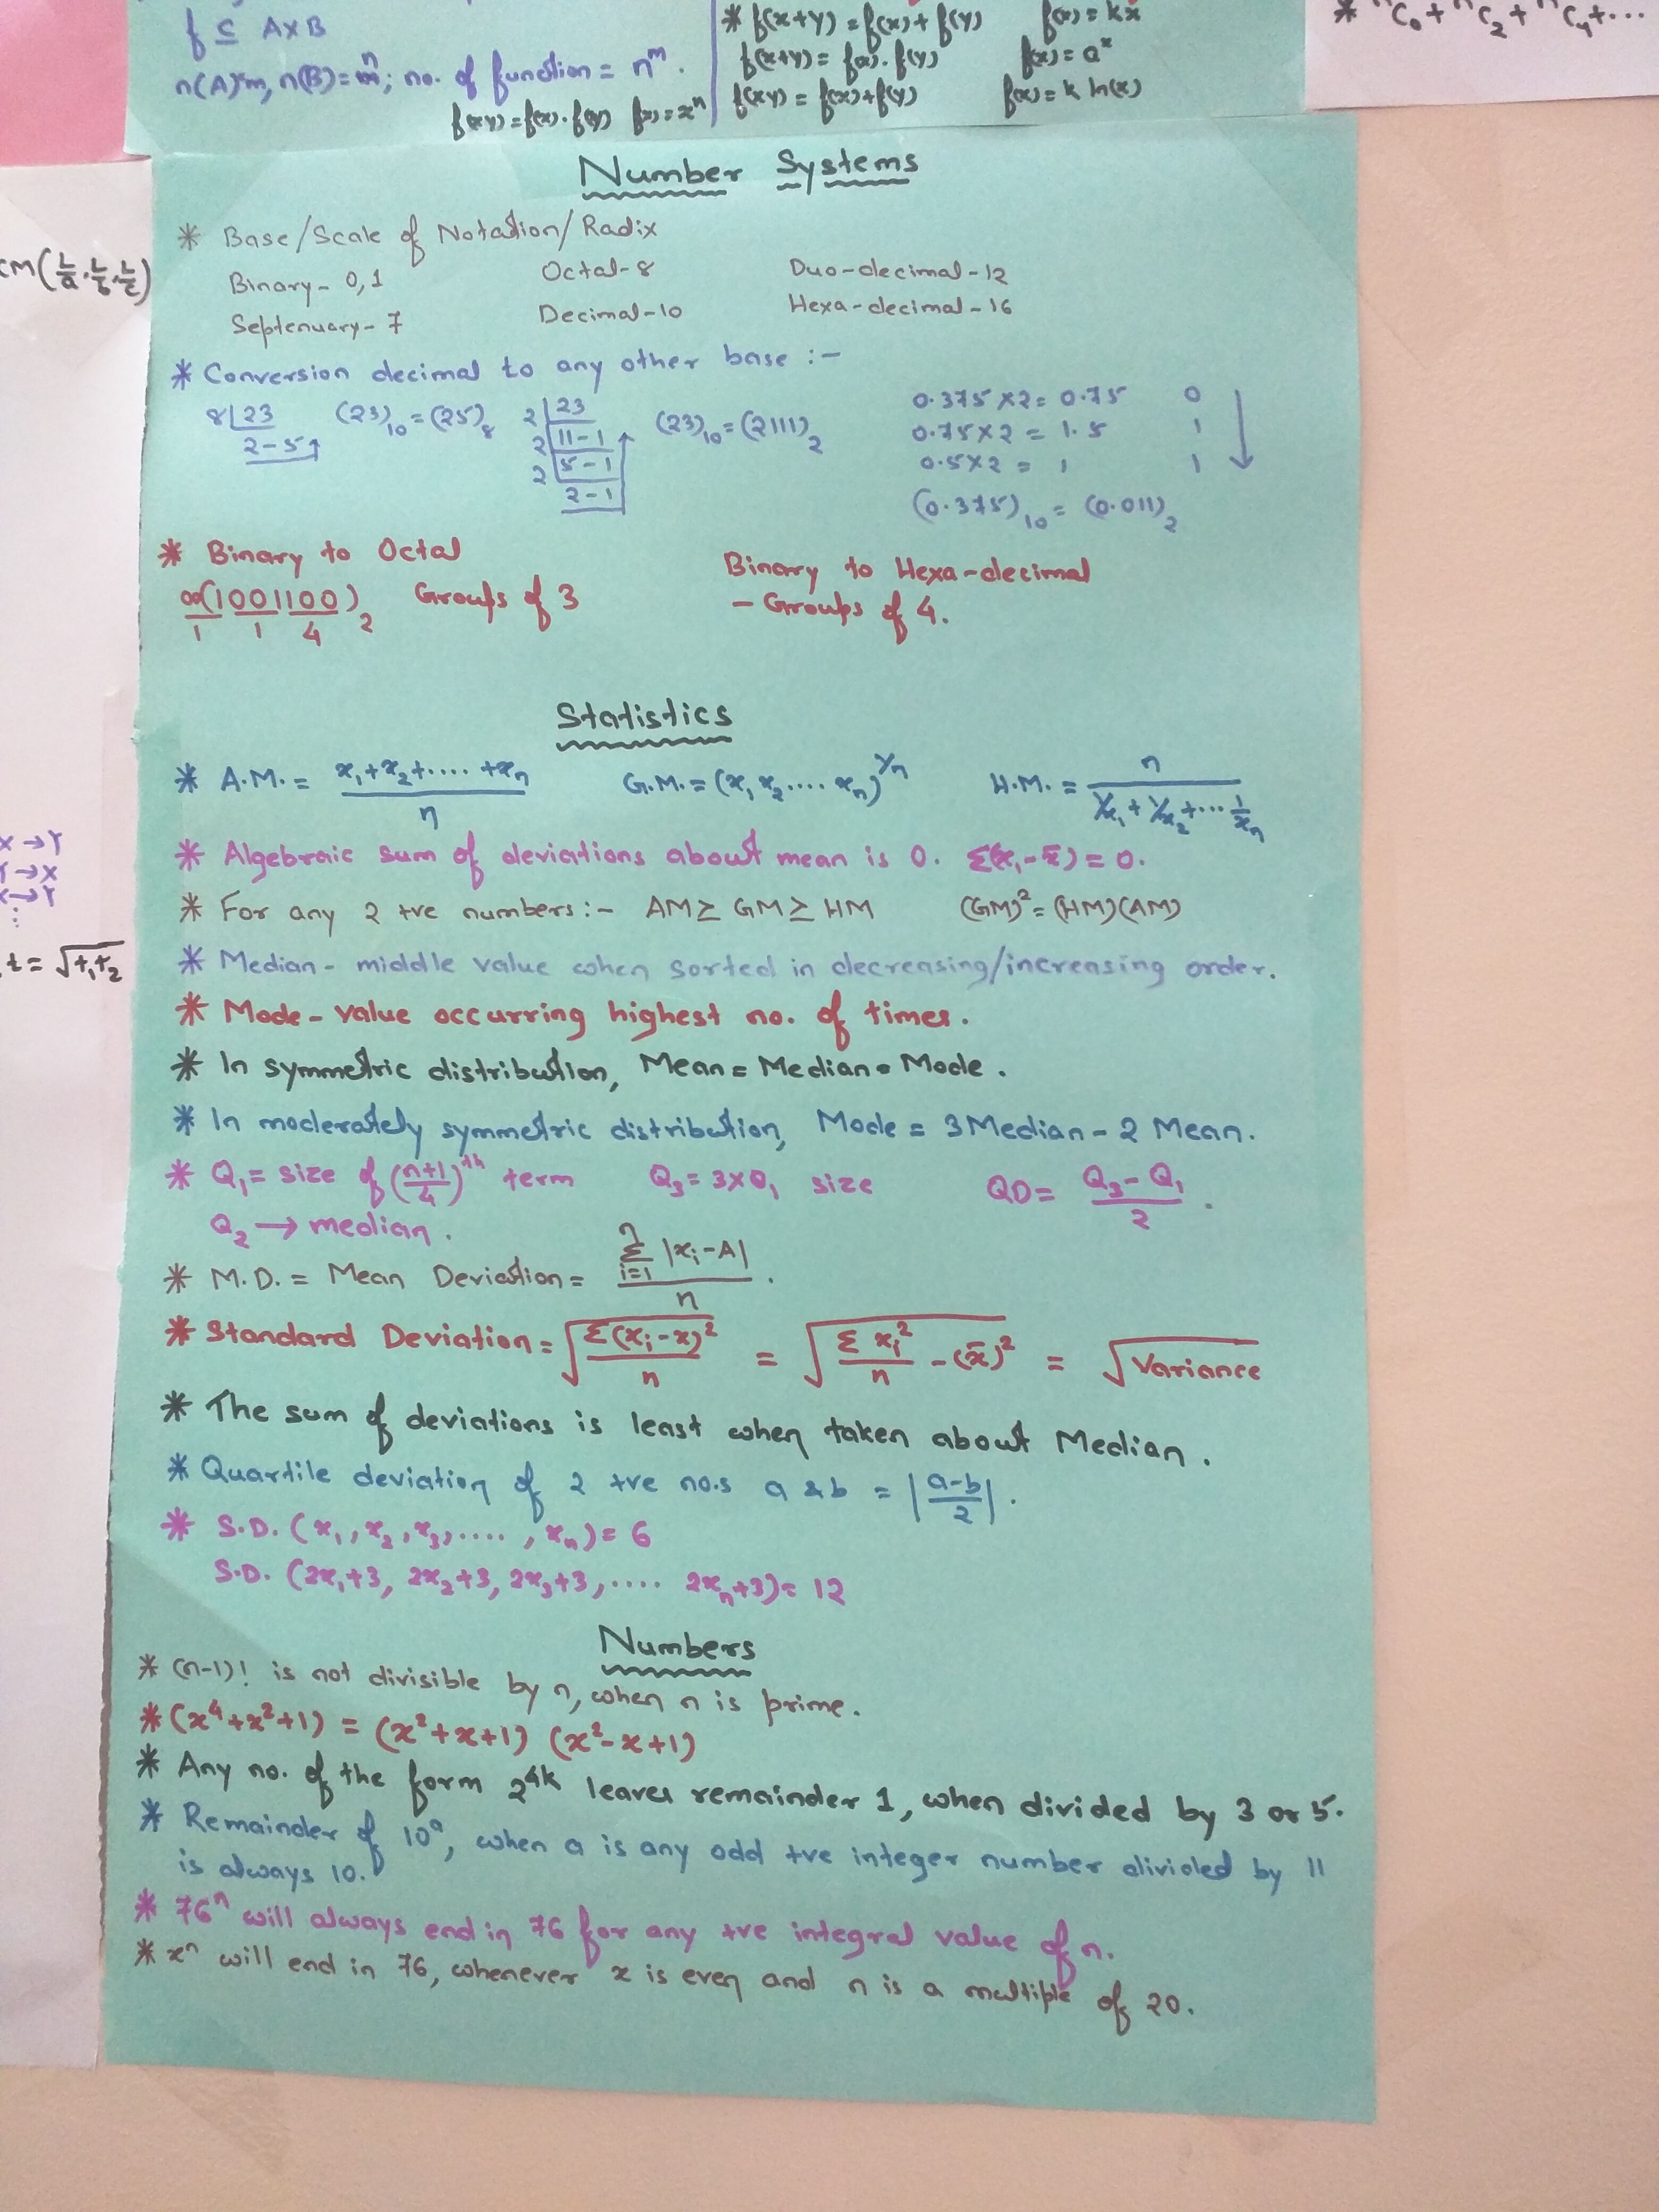 f ⊆ A×B
n(A)=m, n(B)=n; no. of function = n^m.
f(xy)=f(x).f(y) f(x)=x^n
* f(x+y)=f(x)+f(y) f(x)=kx
f(x+y)=f(x).f(y) f(x)=a^x
f(xy)=f(x)+f(y) f(x)=k ln(x)
* ⁿC₀+ⁿC₂+ⁿC₄+...
CM(L/a, L/b, L/c)
X→Y
Y→X
X→Y
⋮
t=√t₁t₂
Number Systems
* Base/Scale of Notation/Radix
Binary- 0,1 Octal-8 Duo-decimal-12
Septenuary- 7 Decimal-10 Hexa-decimal-16
* Conversion decimal to any other base :-
8|23 (23)₁₀=(25)₈ 2|23 (23)₁₀=(2111)₂ 0.375×2= 0.75 0
2-5 2|11-1 0.75×2= 1.5 1
2|5-1 0.5×2 = 1 1
2-1 (0.375)₁₀= (0.011)₂
* Binary to Octal Binary to Hexa-decimal
00(1001100)₂ Groups of 3 - Groups of 4.
1 1 4
Statistics
* A.M.= (x₁+x₂+....+xₙ)/n G.M.=(x₁ x₂.... xₙ)^1/n H.M.= n/(1/x₁+1/x₂+...1/xₙ)
* Algebraic sum of deviations about mean is 0. Σ(x₁-x̄)=0.
* For any 2 +ve numbers:- AM≥GM≥HM (GM)²=(HM)(AM)
* Median- middle value when sorted in decreasing/increasing order.
* Mode- value occurring highest no. of times.
* In symmetric distribution, Mean=Median=Mode.
* In moderately symmetric distribution, Mode = 3Median-2 Mean.
* Q₁= size of ((n+1)/4)^th term Q₃=3×Q₁ size QD= (Q₃-Q₁)/2.
Q₂→median.
* M.D.= Mean Deviation= (Σ_{i=1}^n |xᵢ-A|)/n.
* Standard Deviation=√(Σ(xᵢ-x)²/n) = √(Σxᵢ²/n -(x̄)²) = √Variance
* The sum of deviations is least when taken about Median.
* Quartile deviation of 2 +ve no.s a & b = |(a-b)/2|.
* S.D. (x₁,x₂,x₃,....,xₙ)=6
S.D. (2x₁+3, 2x₂+3, 2x₃+3,.... 2xₙ+3)=12
Numbers
* (n-1)! is not divisible by n, when n is prime.
* (x⁴+x²+1) = (x²+x+1) (x²-x+1)
* Any no. of the form 2^4k leaves remainder 1, when divided by 3 or 5.
* Remainder of 10^a, when a is any odd +ve integer number divided by 11
is always 10.
* 76ⁿ will always end in 76 for any +ve integral value of n.
* xⁿ will end in 76, whenever x is even and n is a multiple of 20.